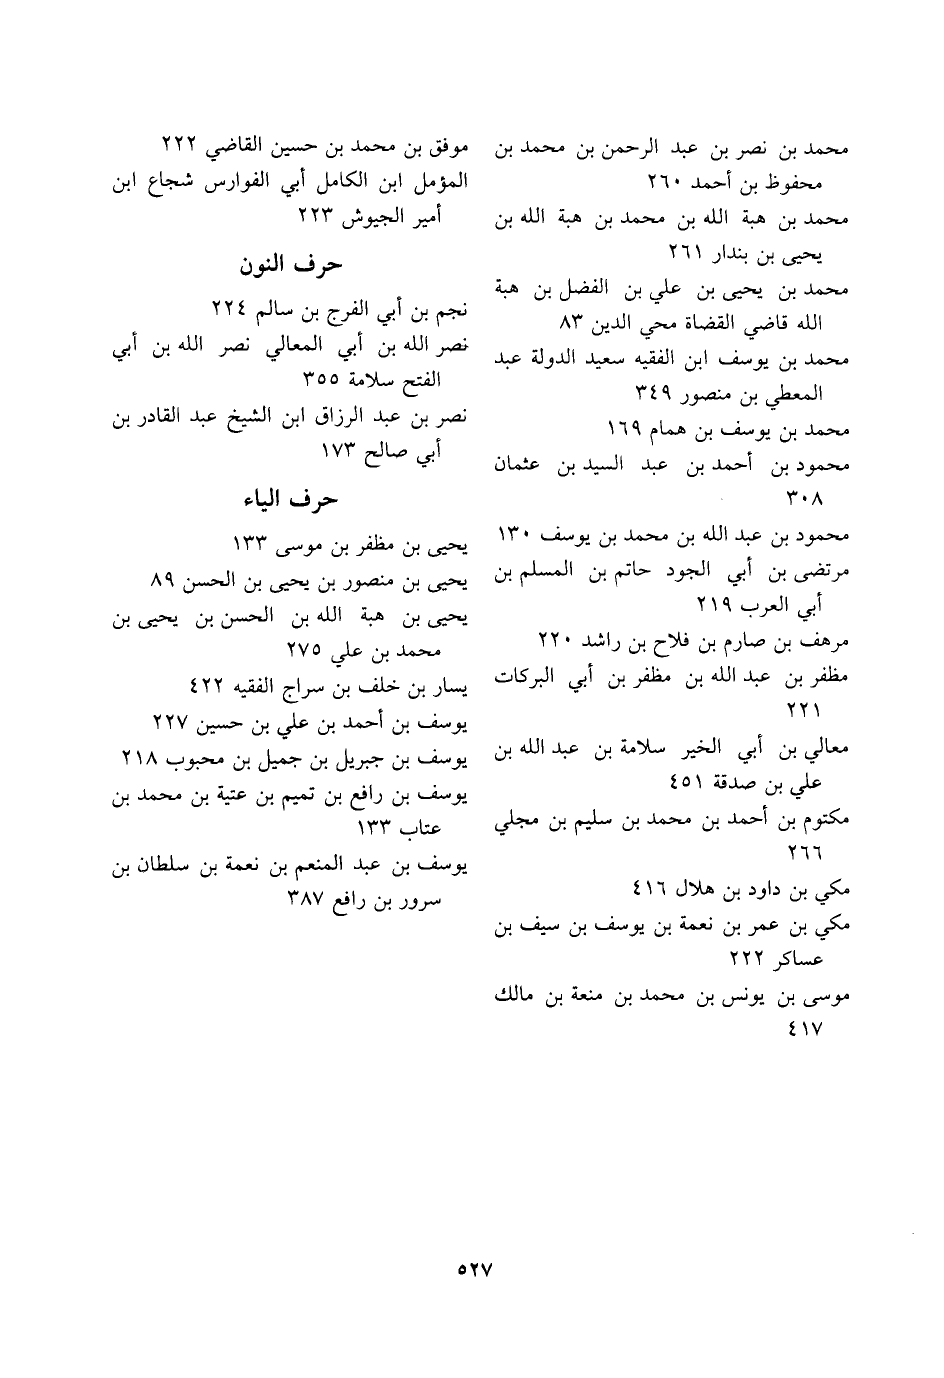 محمد بن نصر بن عبد الرحمن بن محمد بن
محفوظ بن أحمد ٢٦٠
محمد بن هبة الله بن محمد بن هبة الله بن
يحيى بن بندار ٢٦١
محمد بن يحيى بن علي بن الفضل بن هبة
الله قاضي القضاة محي الدين ٨٣
محمد بن يوسف ابن الفقيه سعيد الدولة عبد
المعطي بن منصور ٣٤٩
محمد بن يوسف بن همام ١٦٩
محمود بن أحمد بن عبد السيد بن عثمان
٣٠٨
محمود بن عبد الله بن محمد بن يوسف ١٣٠
مرتضى بن أبي الجود حاتم بن المسلم بن
أبي العرب ٢١٩
مرهف بن صارم بن فلاح بن راشد ٢٢٠
مظفر بن عبد الله بن مظفر بن أبي البركات
٢٢١
معالي بن أبي الخير سلامة بن عبد الله بن
علي بن صدقة ٤٥١
مكتوم بن أحمد بن محمد بن سليم بن مجلي
٢٦٦
مكي بن داود بن هلال ٤١٦
مكي بن عمر بن نعمة بن يوسف بن سيف بن
عساكر ٢٢٢
موسى بن يونس بن محمد بن منعة بن مالك
٤١٧
موفق بن محمد بن حسين القاضي ٢٢٢
المؤمل ابن الكامل أبي الفوارس شجاع ابن
أمير الجيوش ٢٢٣
حرف النون
نجم بن أبي الفرج بن سالم ٢٢٤
نصر الله بن أبي المعالي نصر الله بن أبي
الفتح سلامة ٣٥٥
نصر بن عبد الرزاق ابن الشيخ عبد القادر بن
أبي صالح ١٧٣
حرف الياء
يحيى بن مظفر بن موسى ١٣٣
يحيى بن منصور بن يحيى بن الحسن ٨٩
يحيى بن هبة الله بن الحسن بن يحيى بن
محمد بن علي ٢٧٥
يسار بن خلف بن سراج الفقيه ٤٢٢
يوسف بن أحمد بن علي بن حسين ٢٢٧
يوسف بن جبريل بن جميل بن محبوب ٢١٨
يوسف بن رافع بن تميم بن عتية بن محمد بن
عتاب ١٣٣
يوسف بن عبد المنعم بن نعمة بن سلطان بن
سرور بن رافع ٣٨٧
٥٢٧